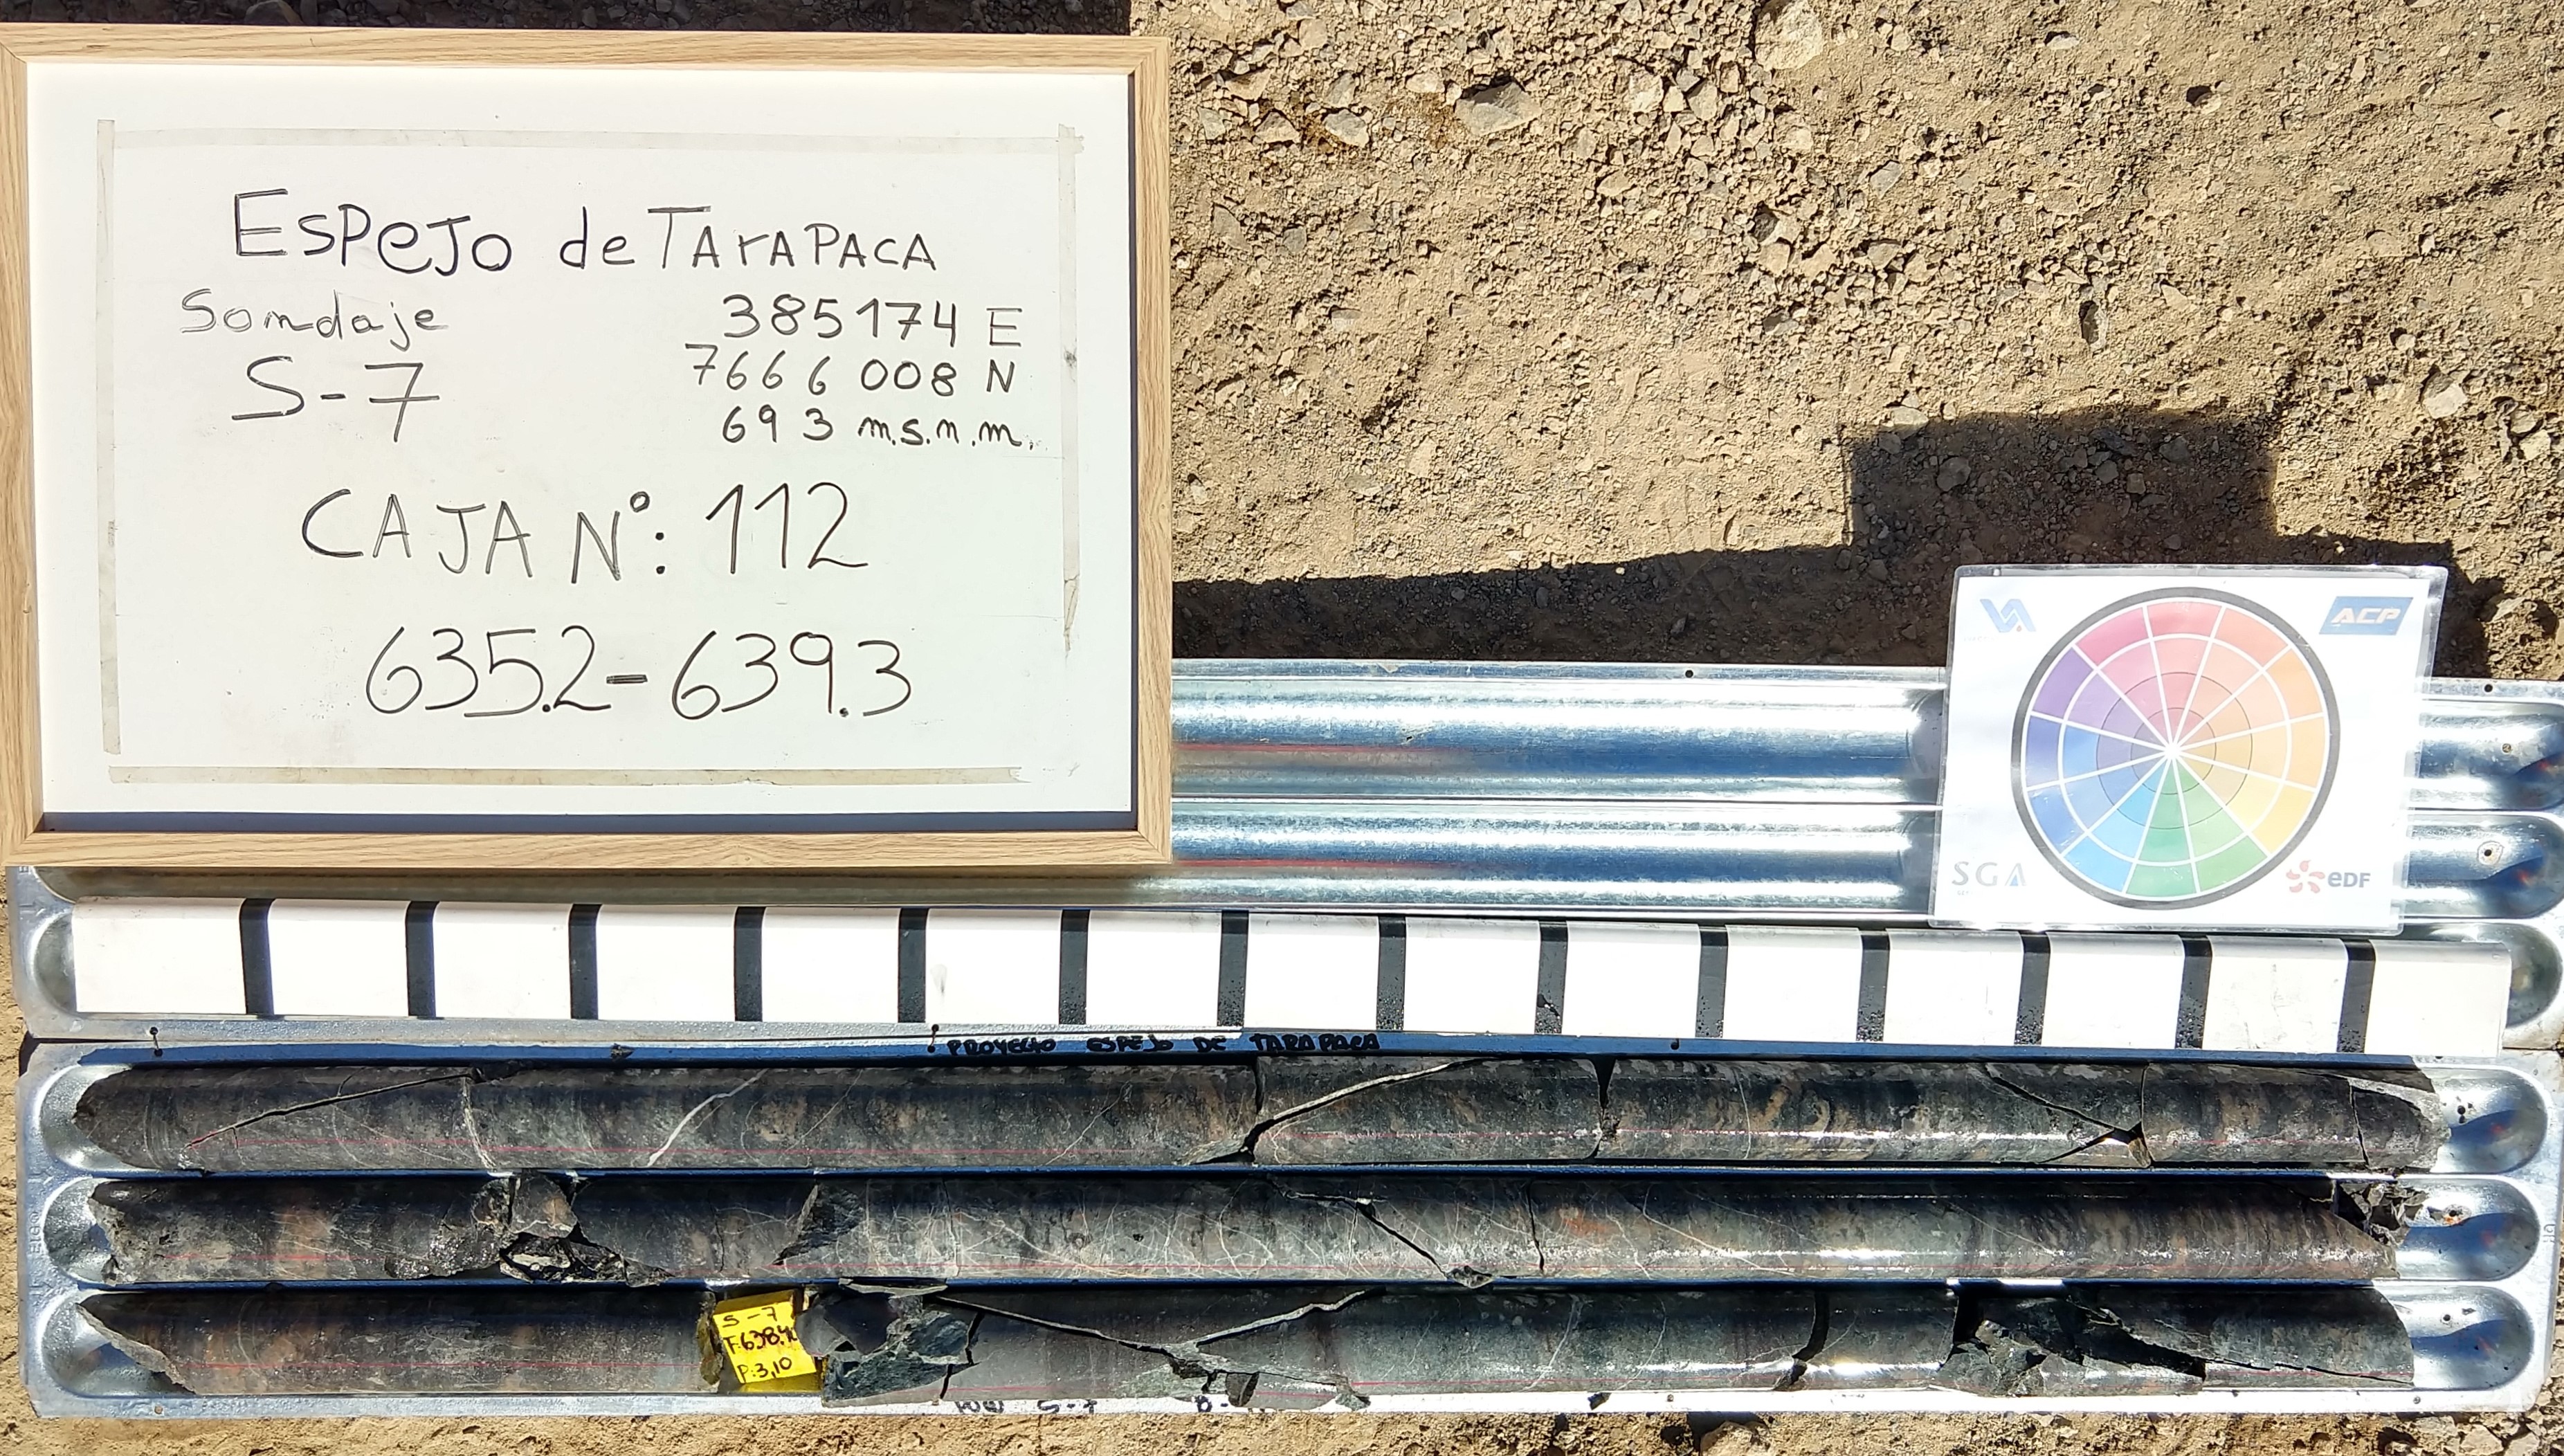 ESPEJO de TArAPACA
Sondaje
S-7
385174 E
7666 008 N
693 m.s.n.m.
CAJA N°: 112
635.2-639.3
ACP
SGA
eDF
PROYECTO ESPEJO DE TARAPACA
S-7
F:638,40
P:3,10
S-7